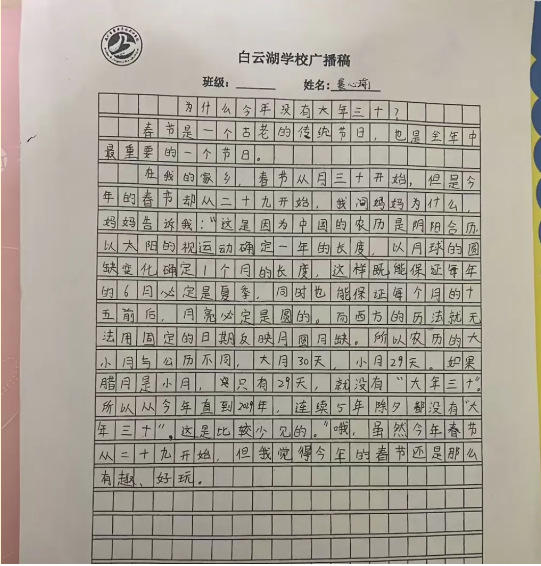 白云湖学校广播稿
班级：______ 姓名：晏心瑜
为什么今年没有大年三十？
春节是一个古老的传统节日，也是全年中
最重要的一个节日。
在我的家乡，春节从月三十开始，但是今
年的春节却从二十九开始，我问妈妈为什么，
妈妈告诉我："这是因为中国的农历是阴阳合历，
以太阳的视运动确定一年的长度，以月球的圆
缺变化确定1个月的长度，这样既能保证每年
的6月必定是夏季，同时也能保证每个月的十
五前后，月亮必定是圆的。而西方的历法就无
法用固定的日期反映月圆月缺。所以农历的大
小月与公历不同，大月30天，小月29天。如果
腊月是小月，只有29天，就没有"大年三十"。
所以从今年直到2029年，连续5年除夕都没有"大
年三十"，这是比较少见的。"哦，虽然今年春节
从二十九开始，但我觉得今年的春节还是那么
有趣、好玩。